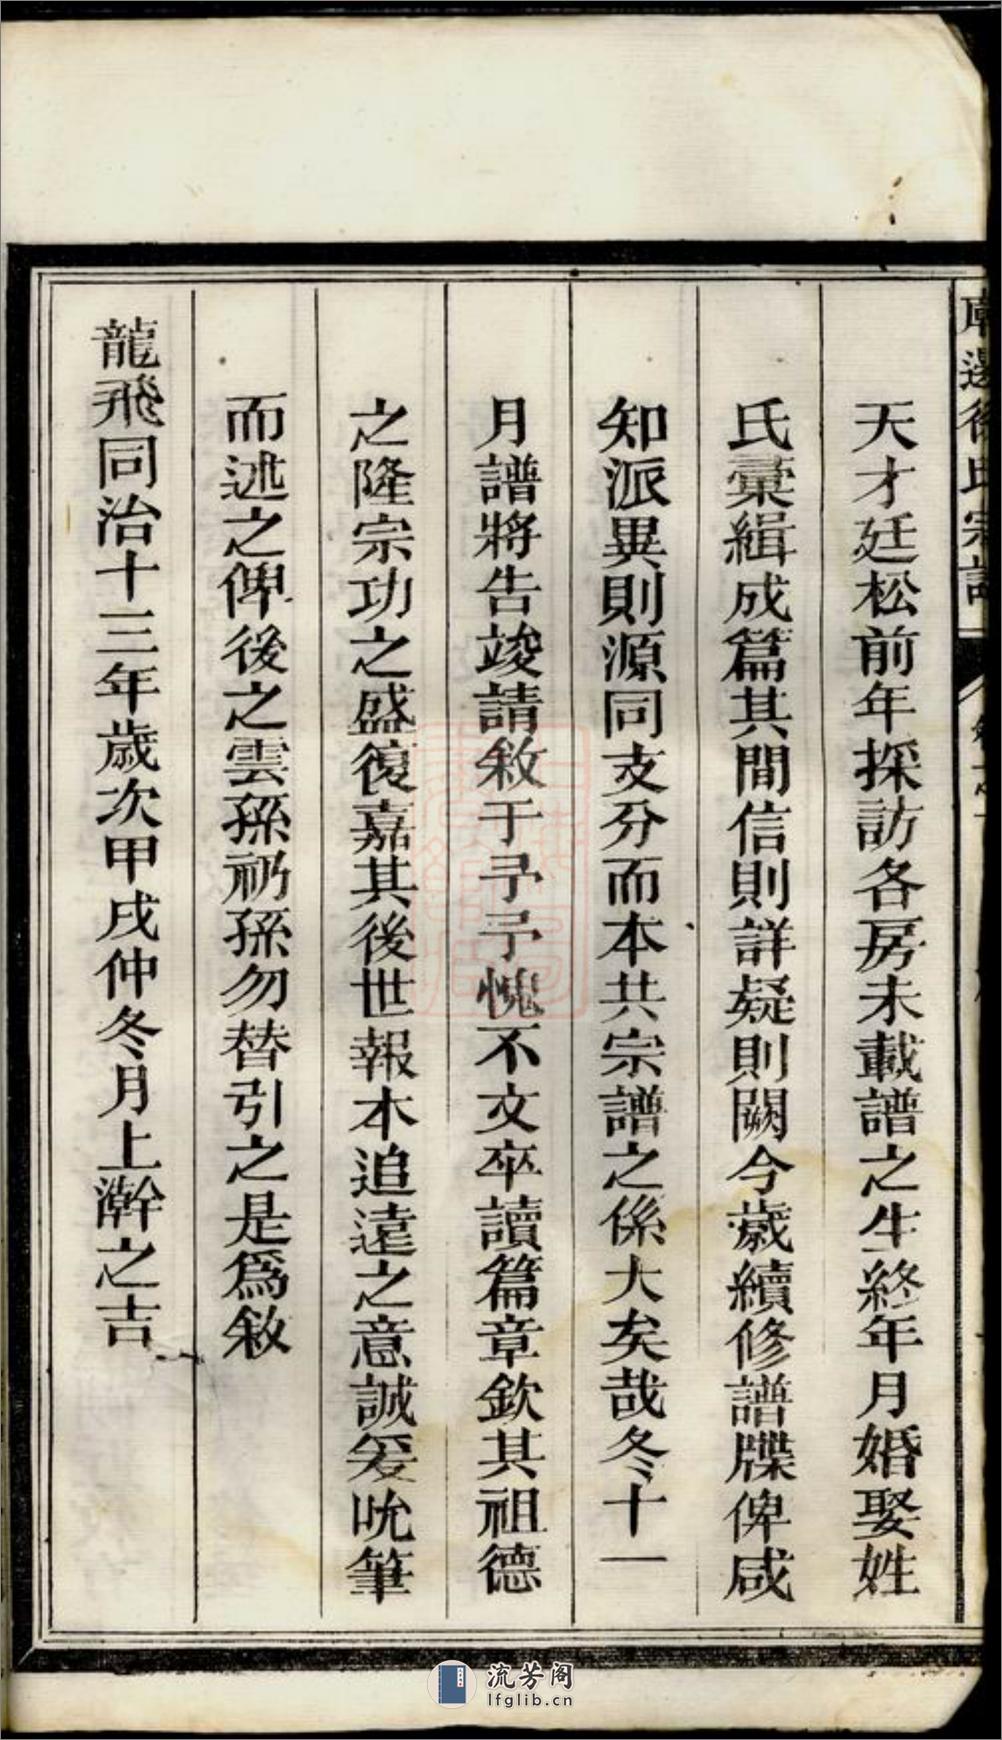 天才廷松前年採訪各房未載譜之生終年月婚娶姓
氏彙緝成篇其間信則詳疑則闕今歲續修譜牒俾咸
知派異則源同支分而本共宗譜之係大矣哉冬十一
月譜將告竣請敘于予予愧不文卒讀篇章欽其祖德
之隆宗功之盛復嘉其後世報本追遠之意誠爰吮筆
而述之俾後之雲孫礽孫勿替引之是爲敘
龍飛同治十三年歲次甲戌仲冬月上澣之吉
流芳阁
lfglib.cn